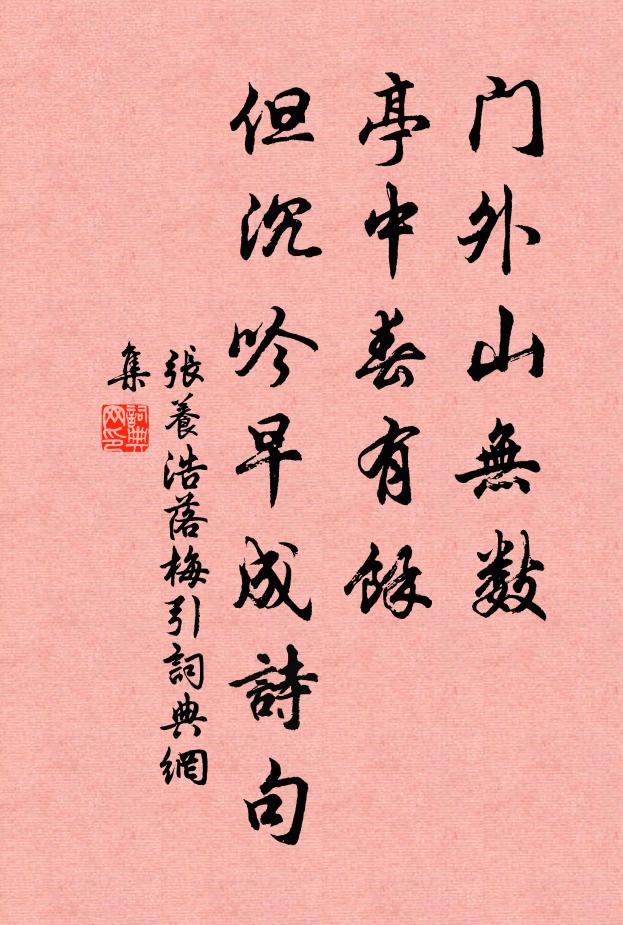 门外山無数
亭中春有餘
但沉吟早成詩句
張養浩落梅引詞典網
集
詞典
网印